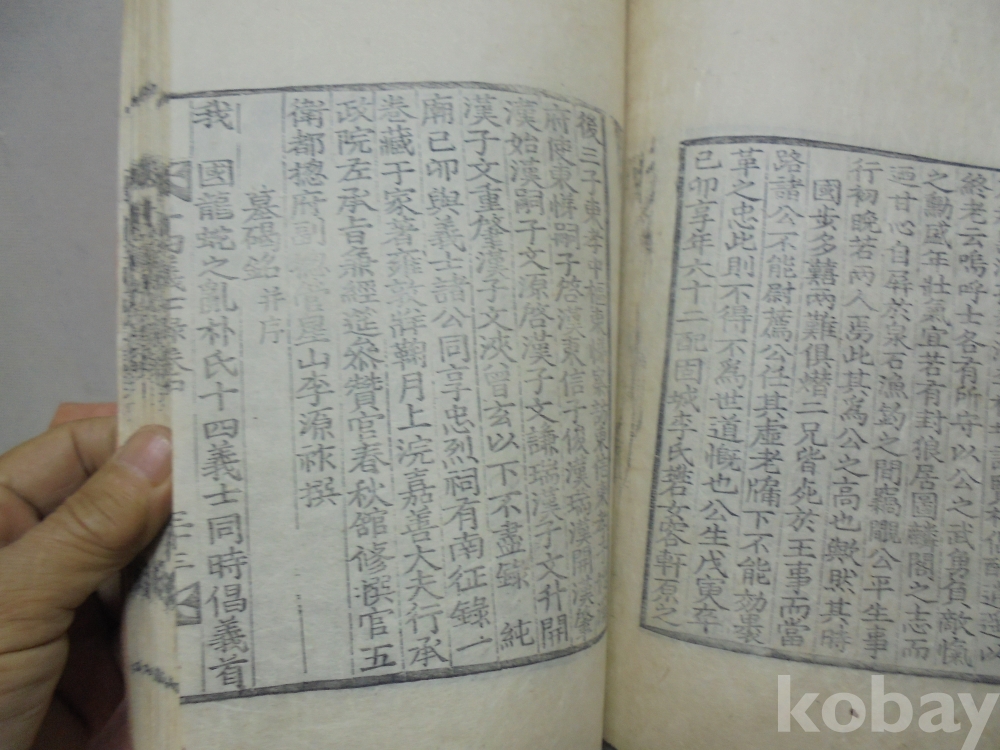 終老云嗚呼士各有所守以公之武勇負敵愾
之勳盛年壯氣宜若有封狼居圖麟閣之志而
迺甘心自屛於泉石漁釣之間竊矙公平生事
行初晩若兩人焉此其爲公之高也歟然其時
國步多囏兩難俱熸二兄皆死於王事而當
路諸公不能尉薦公任其虛老牖下不能効裹
革之忠此則不得不爲世道慨也公生戊寅卒
己卯享年六十二配固城李氏礬女容軒原之
後三子東
府使東悌嗣子啓漢東信子俊漢瑞漢開漢肇
漢始漢嗣子文源啓漢子文謙瑞漢子文升開
漢子文重肇漢子文浹曾玄以下不盡錄 純
廟己卯與義士諸公同享忠烈祠有南征錄一
卷藏于家著雍敦牂鞠月上浣嘉善大夫行承
政院左承旨兼經筵參贊官春秋館修撰官五
衛都摠府副摠管星山李源祚撰
墓碣銘 幷序
我 國龍蛇之亂朴氏十四義士同時倡義首
kobay